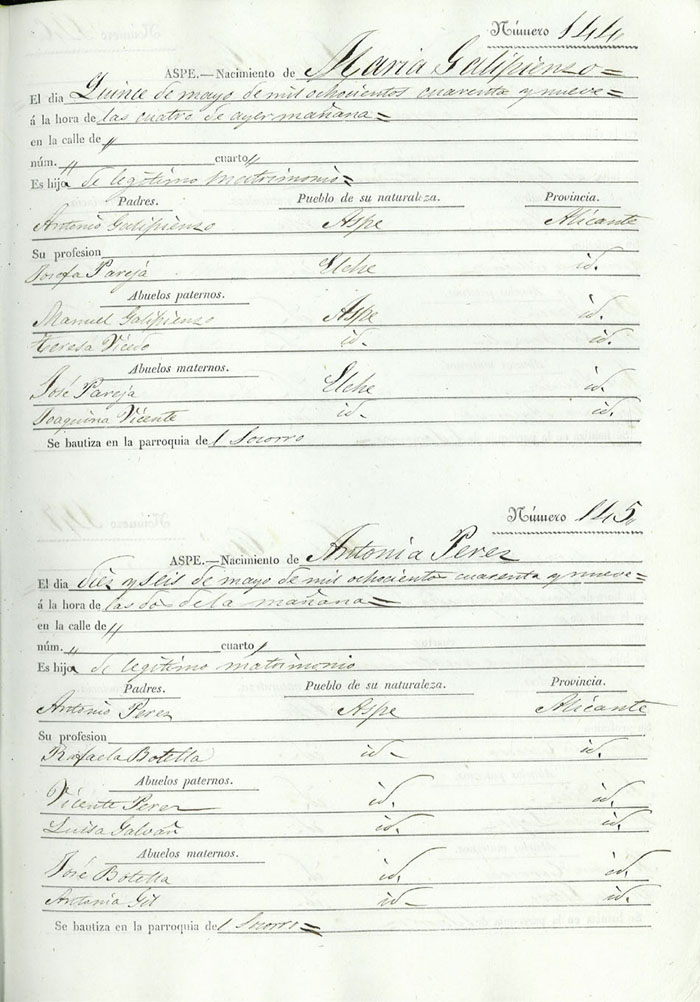 Número 144
ASPE.—Nacimiento de Maria Galipienso=
El dia Quince de mayo de mil ochocientos cuarenta y nueve=
á la hora de las cuatro de ayer mañana=
en la calle de "
núm. " cuarto "
Es hija de legitimo matrimonio=
Padres. Pueblo de su naturaleza. Provincia.
Antonio Galipienso Aspe Alicante
Su profesion
Josefa Pareja Elche id.
Abuelos paternos.
Manuel Galipienso Aspe id.
Teresa id. id.
Abuelos maternos.
José Pareja Elche id.
Joaquina Vicente id. id.
Se bautiza en la parroquia del Socorro
Número 145
ASPE.—Nacimiento de Antonia Perez
El dia diez y seis de mayo de mil ochocientos cuarenta y nueve=
á la hora de las dos de la mañana=
en la calle de "
núm. " cuarto "
Es hija de legitimo matrimonio
Padres. Pueblo de su naturaleza. Provincia.
Antonio Perez Aspe Alicante
Su profesion
Rafaela Botella id. id.
Abuelos paternos.
Vicente Perez id. id.
Luisa Galvañ id. id.
Abuelos maternos.
José Botella id. id.
Antonia Gil id. id.
Se bautiza en la parroquia del Socorro=